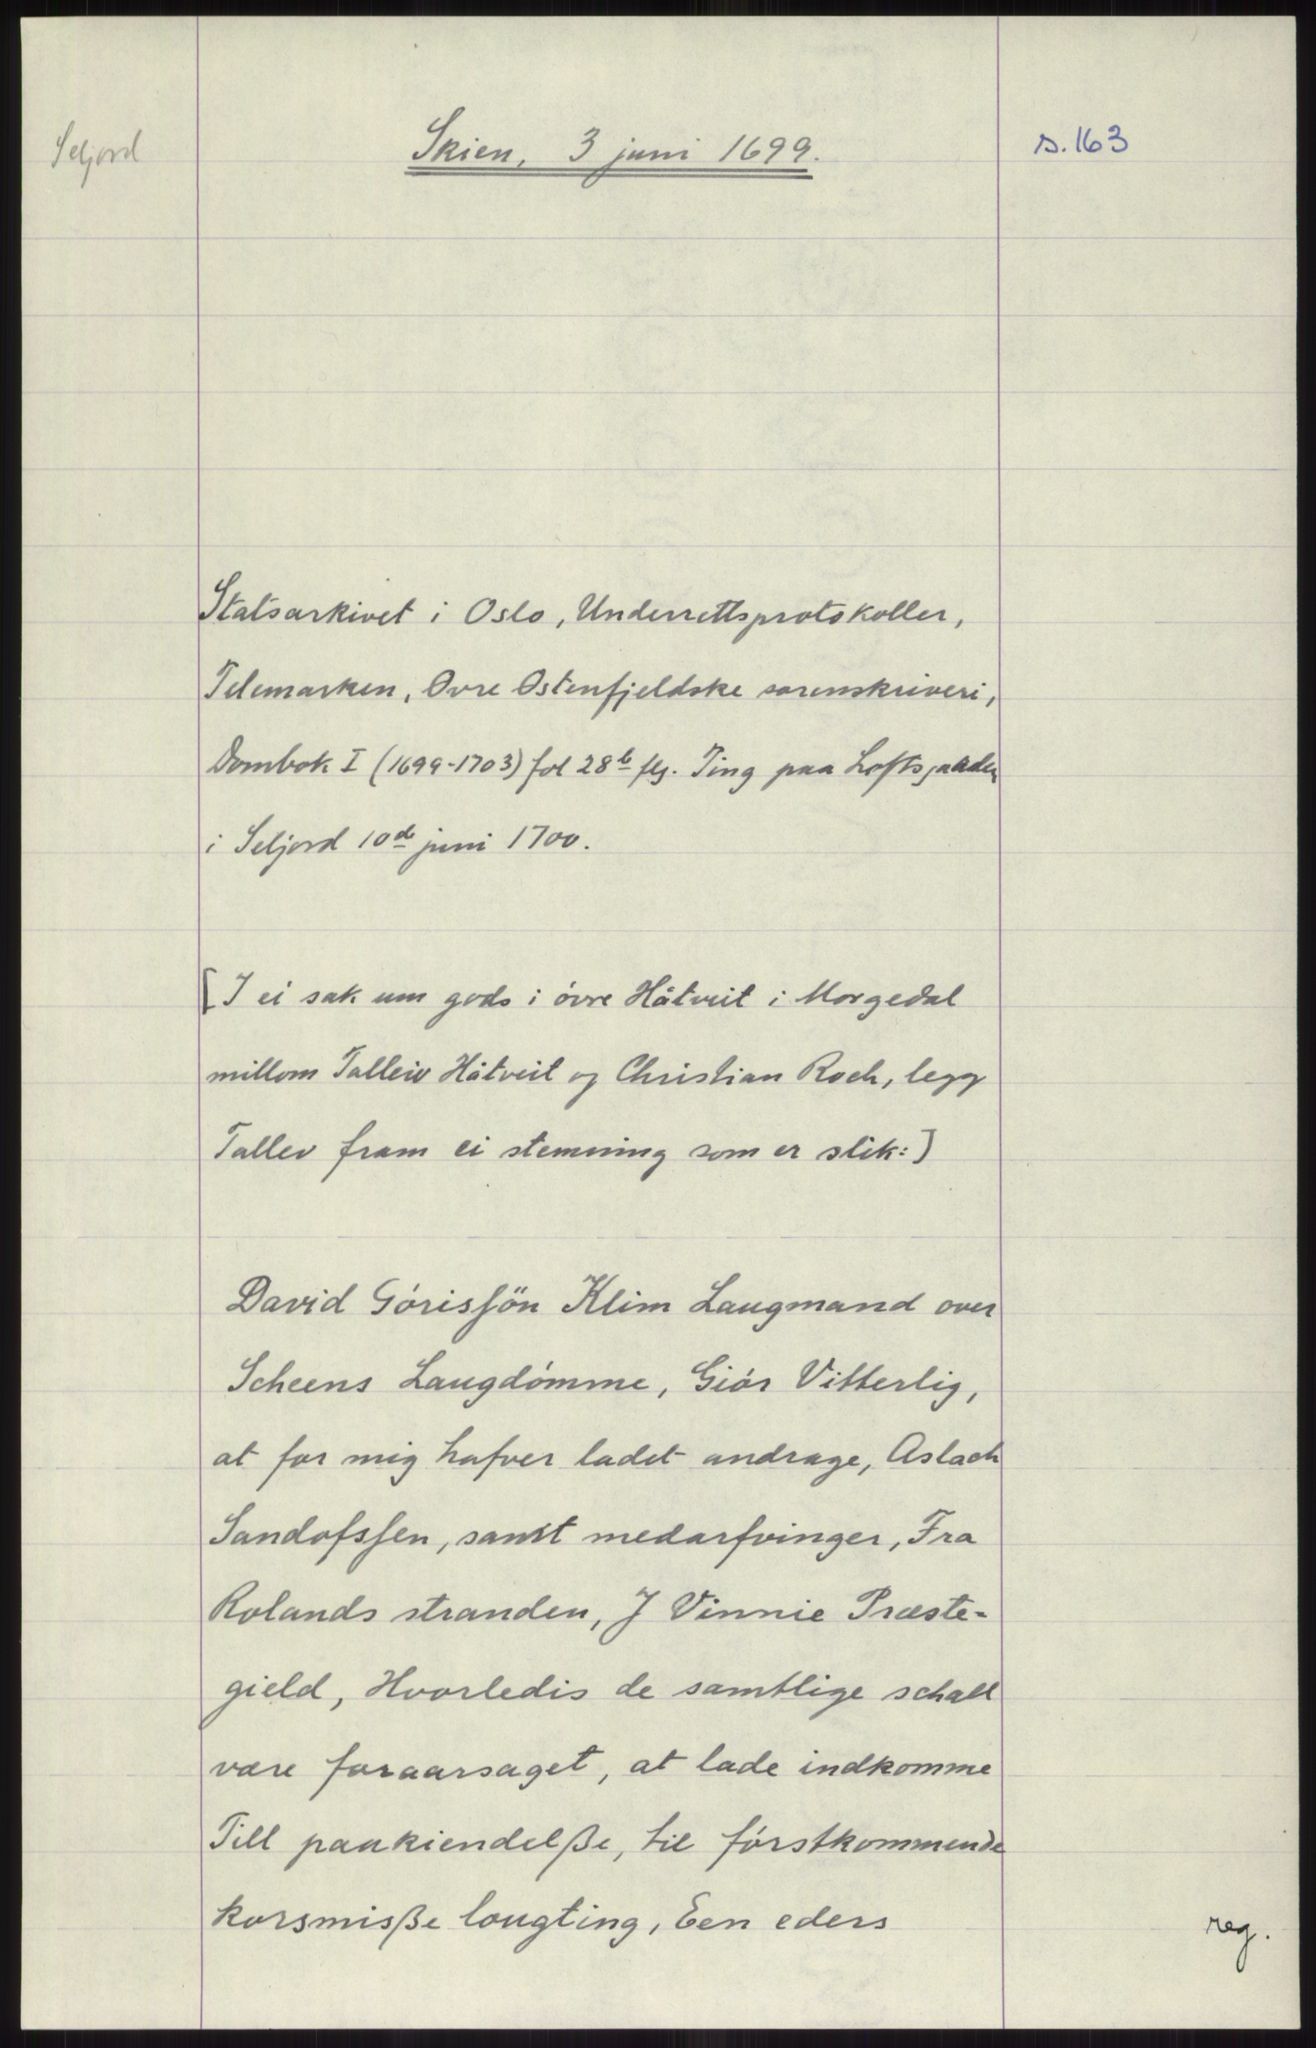 Seljord
Skien, 3 juni 1699.
s. 163
Statsarkivet i Oslo, Underrettsprotokoller,
Telemarken, Øvre Østenfjeldske sorenskriveri,
Dombok I (1699-1703) fol 28b flg. Ting paa Loftsgaarden
i Seljord 10de juni 1700.
[I ei sak um gods i óvre Håtveit i Morgedal
millom Talleiv Håtveit og Christian Roch, legg
Tallev fram ei stemning som er slik:]
David Górissön Klim Laugmand over
Scheens Laugdómme, Giór Vitterlig,
at for mig hafver ladet andrage, Aslach
Sandofssen, samt medarfvinger, Fra
Rolands stranden, J Vinnie Præste-
gield, Hvorledis de samtlige schall
være foraarsaget, at lade indkomme
Till paakiendelße, til fórstkommende
korsmiße lougting, Een eders
reg.